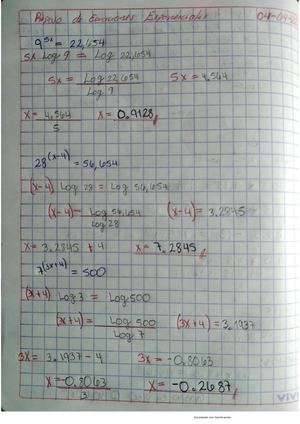 Repaso de Ecuaciones Exponenciales 04-04-
9^5x = 22,654
5x Log 9 = Log 22,654
5x = Log 22,654 / Log 9 5x = 4.564
x = 4.564 / 5 x = 0.9128
28^(x-4) = 56,654
(x-4) Log 28 = Log 56,654
(x-4) = Log 56,654 / Log 28 (x-4) = 3.2845
x = 3.2845 + 4 x = 7.2845
7^(3x+4) = 500
(3x+4) Log 3 = Log 500
(3x+4) = Log 500 / Log 7 (3x+4) = 3.1937
3x = 3.1937 - 4 3x = -0.8063
x = -0.8063 / 3 x = -0.2687
Escaneado con CamScanner